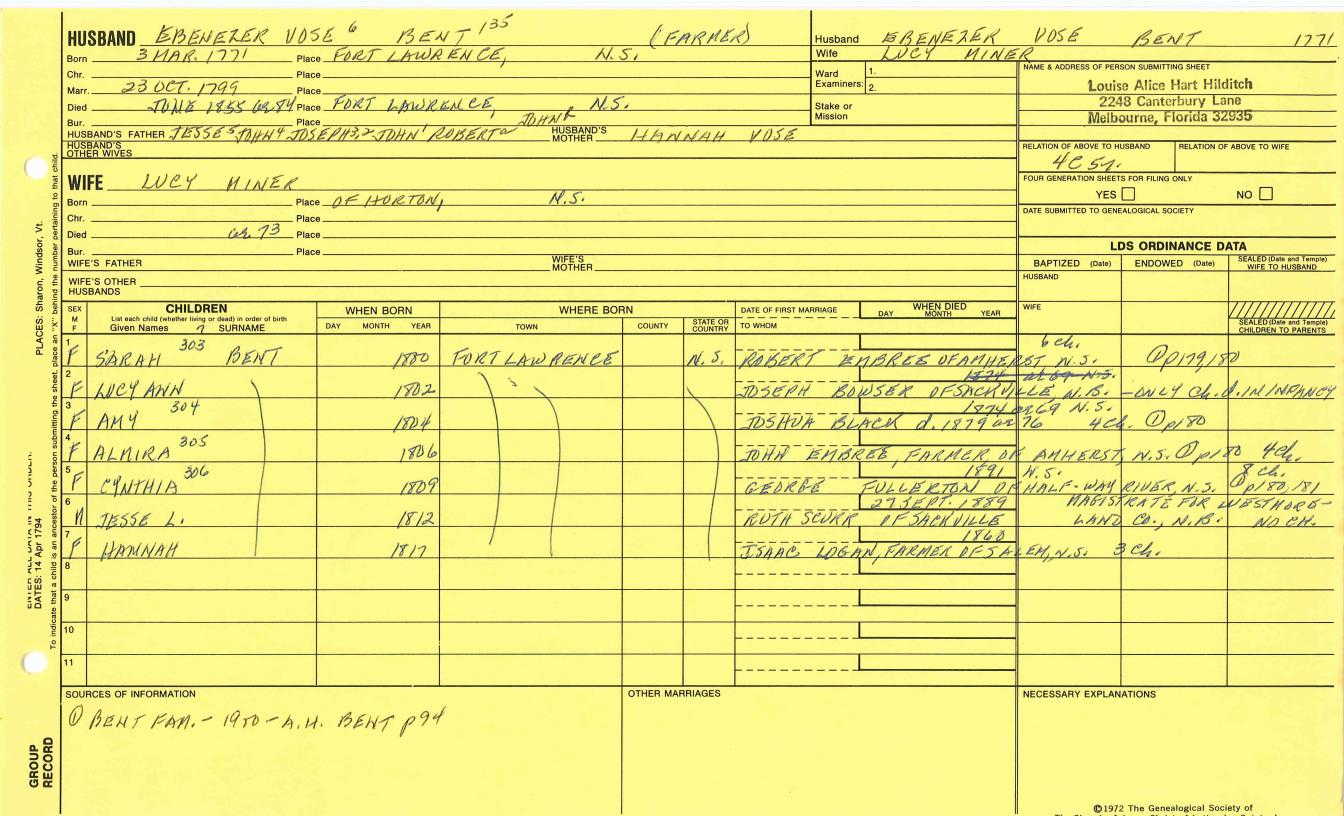 HUSBAND EBENEZER VOSE 6 BENT 135 (FARMER)
Born 3 MAR. 1771 Place FORT LAWRENCE, N.S.
Chr. Place
Marr. 23 OCT. 1799 Place
Died JUNE 1855 ae 84 Place FORT LAWRENCE, N.S.
Bur. Place
HUSBAND'S FATHER JESSE5 JOHN4 JOSEPH3,2 JOHN1 ROBERTa JOHNb HUSBAND'S MOTHER HANNAH VOSE
HUSBAND'S OTHER WIVES
Husband EBENEZER VOSE BENT 1771
Wife LUCY MINER
Ward Examiners: 1.
2.
Stake or Mission
NAME & ADDRESS OF PERSON SUBMITTING SHEET
Louise Alice Hart Hilditch
2248 Canterbury Lane
Melbourne, Florida 32935
RELATION OF ABOVE TO HUSBAND RELATION OF ABOVE TO WIFE
4C 5r.
FOUR GENERATION SHEETS FOR FILING ONLY
YES NO
DATE SUBMITTED TO GENEALOGICAL SOCIETY
WIFE LUCY MINER
Born Place OF HORTON, N.S.
Chr. Place
Died ae. 73 Place
Bur. Place
WIFE'S FATHER WIFE'S MOTHER
WIFE'S OTHER HUSBANDS
LDS ORDINANCE DATA
BAPTIZED (Date) ENDOWED (Date) SEALED (Date and Temple) WIFE TO HUSBAND
HUSBAND
WIFE
SEALED (Date and Temple) CHILDREN TO PARENTS
SEX M F CHILDREN WHEN BORN WHERE BORN DATE OF FIRST MARRIAGE WHEN DIED
List each child (whether living or dead) in order of birth
Given Names 7 SURNAME DAY MONTH YEAR TOWN COUNTY STATE OR COUNTRY TO WHOM DAY MONTH YEAR
1 303 6 ch.
F SARAH BENT 1800 FORT LAWRENCE N.S. ROBERT EMBREE OF AMHERST N.S. ① p179,180
2
F LUCY ANN 1802 JOSEPH BOWSER OF SACKVILLE, N.B. - ONLY Ch. d. IN INFANCY
3 304 1874 ae 69 N.S.
F AMY 1804 JOSHUA BLACK d. 1879 ae 76 4 Ch. ① p180
4 305
F ALMIRA 1806 JOHN EMBREE, FARMER OF AMHERST, N.S. ① p180 4 Ch.
5 306 1891 N.S. 8 Ch.
F CYNTHIA 1809 GEORGE FULLERTON OF HALF-WAY RIVER, N.S. ① p180,181
6 27 SEPT. 1889 MAGISTRATE FOR WESTMORE-
M JESSE L. 1812 RUTH SCURR OF SACKVILLE LAND CO., N.B. NO CH.
7 1860
F HANNAH 1817 ISAAC LOGAN, FARMER OF SALEM, N.S. 3 Ch.
8
9
10
11
SOURCES OF INFORMATION OTHER MARRIAGES NECESSARY EXPLANATIONS
① BENT FAM. - 1900 - A.H. BENT p94
©1972 The Genealogical Society of
PLACES: Sharon, Windsor, Vt.
DATES: 14 Apr 1794
To indicate that a child is an ancestor of the person submitting the sheet, place an "X" behind the number pertaining to that child.
GROUP RECORD